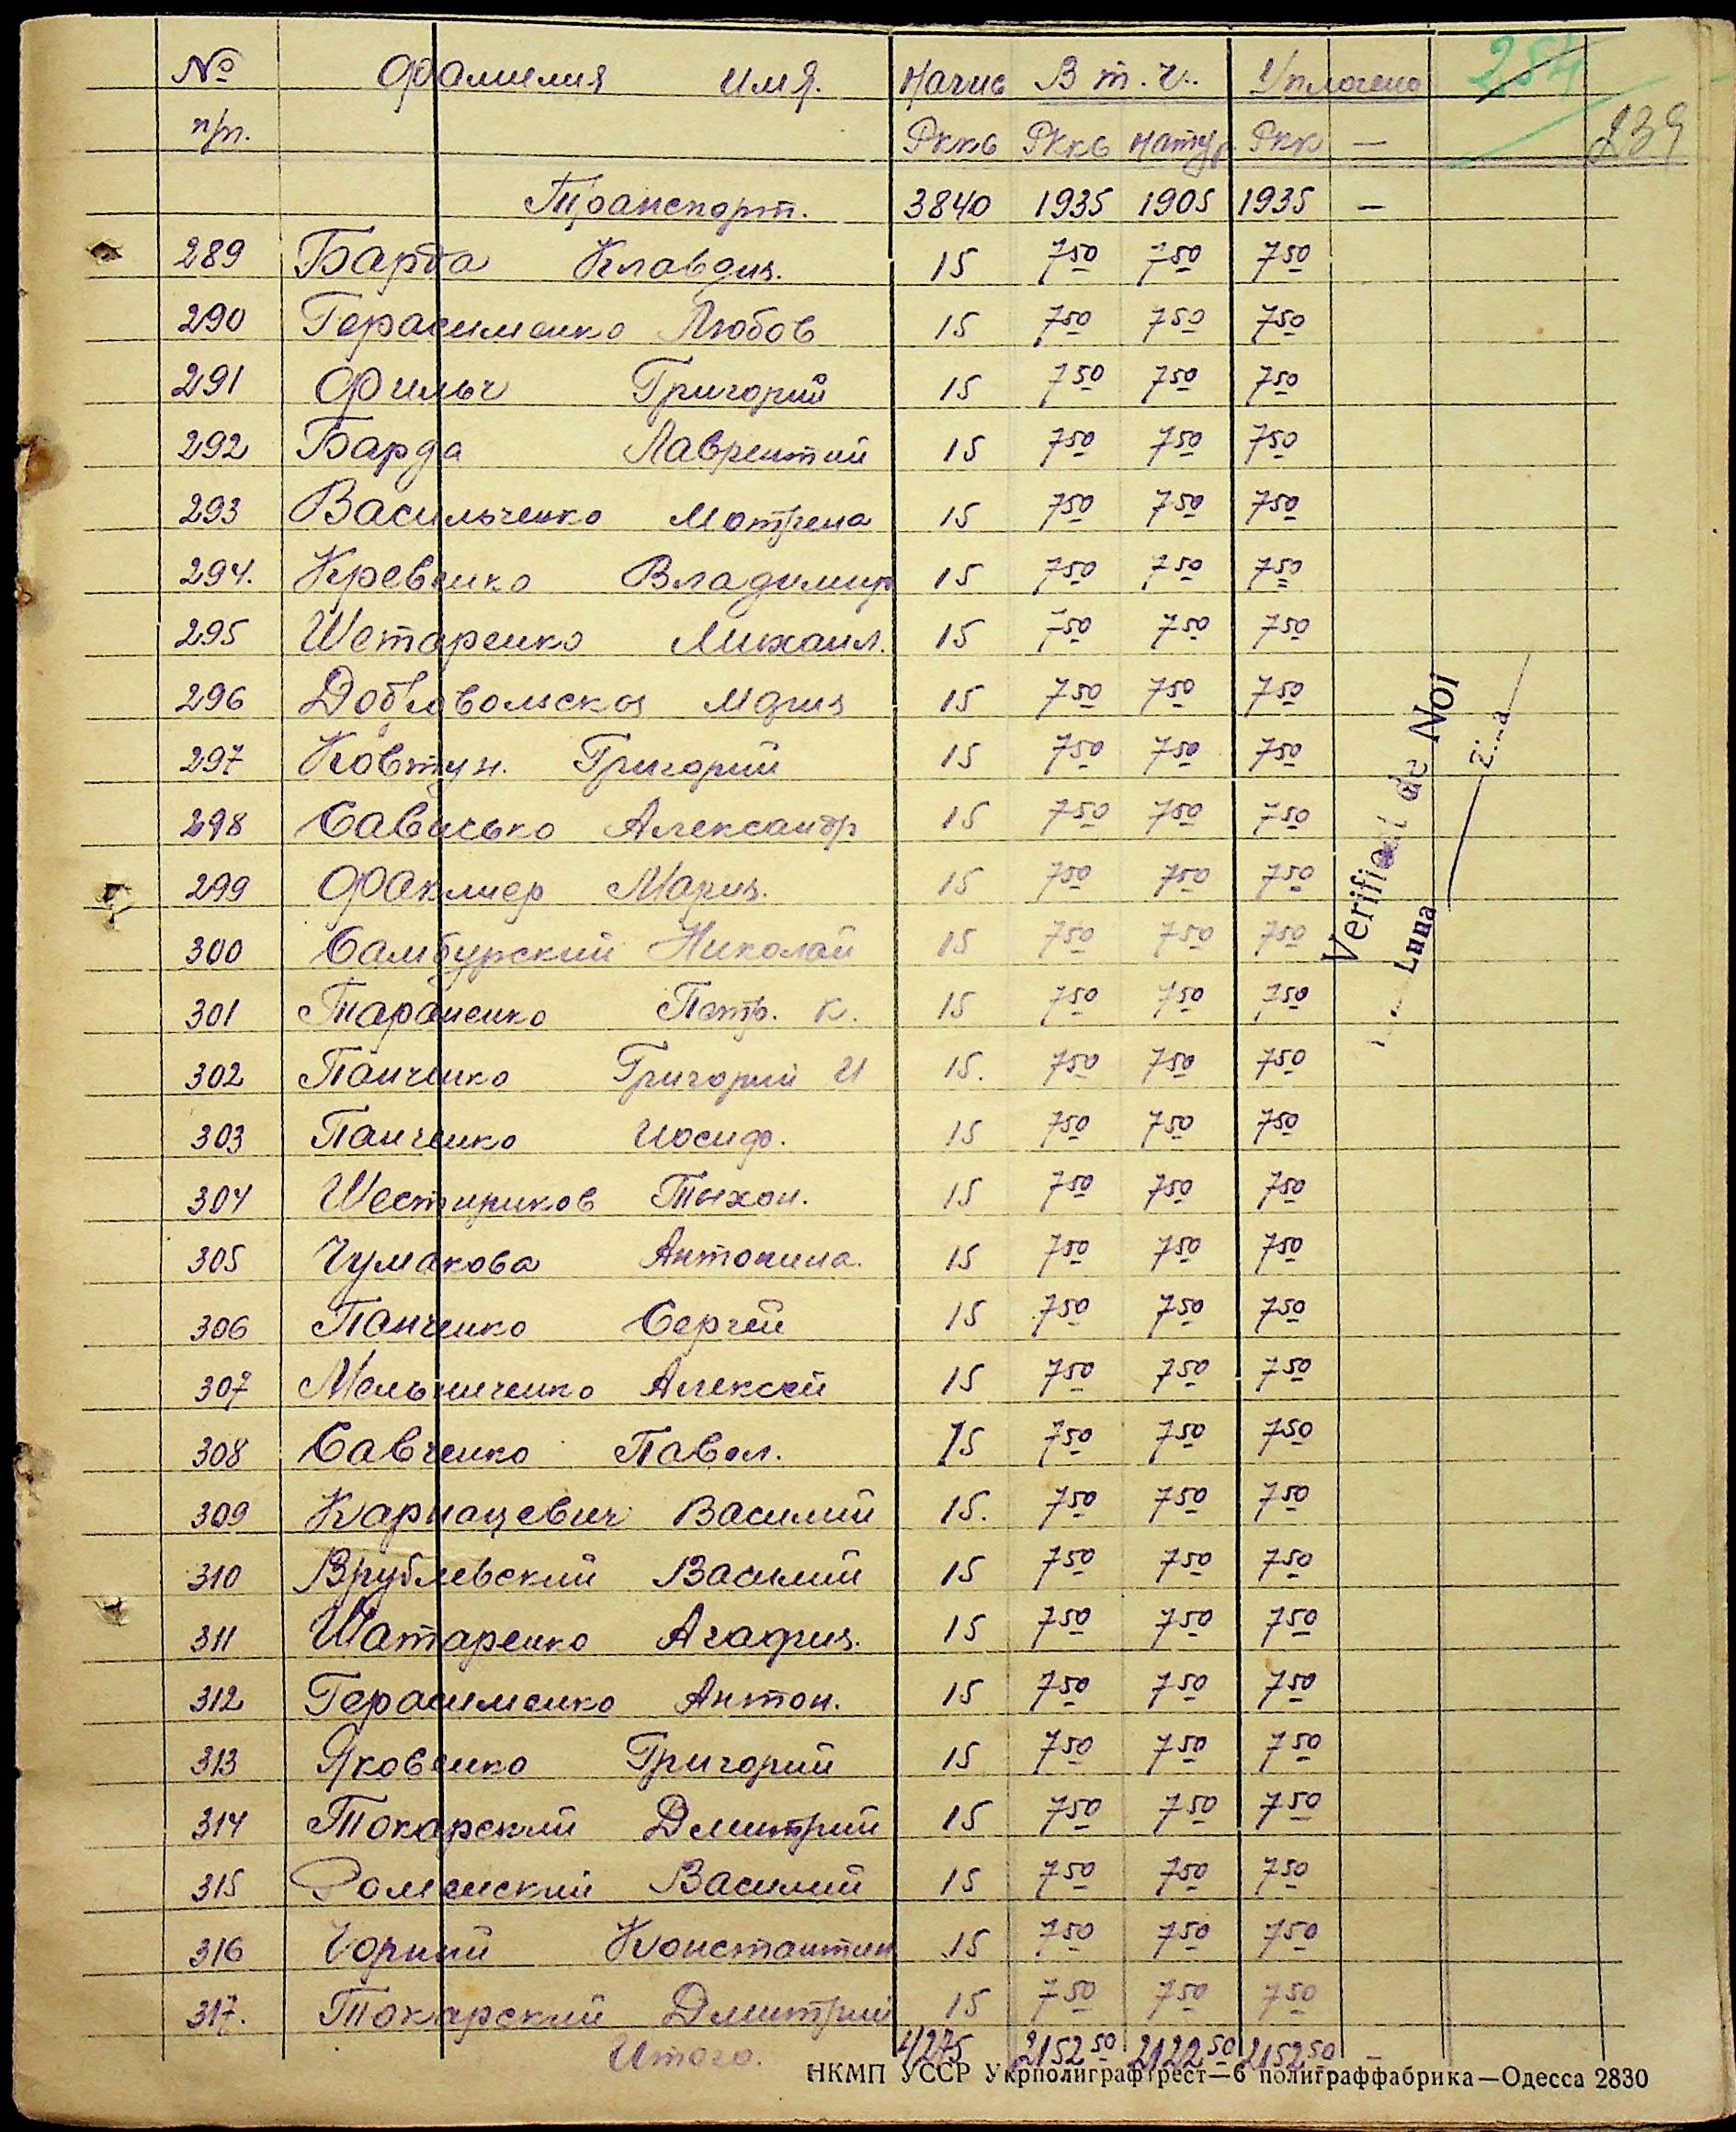 254
239
№ Фамилия Имя. Начис В т. ч. Уплочено
п/п. Ркке Ркке натур. Ркк —
Транспорт. 3840 1935 1905 1935 —
289 Барда Клавдия. 15 7 50 7 50 7 50
290 Герасименко Любов 15 7 50 7 50 7 50
291 Фильч Григорий 15 7 50 7 50 7 50
292 Барда Лаврентий 15 7 50 7 50 7 50
293 Васильченко Мотрена 15 7 50 7 50 7 50
294. Кревенко Владимир 15 7 50 7 50 7 50
295 Шетаренко Михаил. 15 7 50 7 50 7 50
296 Добровольская Мария 15 7 50 7 50 7 50
297 Ковтун. Григорий 15 7 50 7 50 7 50
298 Сависько Александр 15 7 50 7 50 7 50
299 Факлиер Мария. 15 7 50 7 50 7 50
300 Самбурский Николай 15 7 50 7 50 7 50
301 Тараненко Петр. К. 15 7 50 7 50 7 50
302 Панченко Григорий И 15. 7 50 7 50 7 50
303 Панченко Иосиф. 15 7 50 7 50 7 50
304 Шестириков Тихон. 15 7 50 7 50 7 50
305 Чумакова Антонина. 15 7 50 7 50 7 50
306 Панченко Сергей 15 7 50 7 50 7 50
307 Мельниченко Алексей 15 7 50 7 50 7 50
308 Савченко Павел. 15 7 50 7 50 7 50
309 Карнацевич Василий 15. 7 50 7 50 7 50
310 Врублевский Василий 15 7 50 7 50 7 50
311 Шатаренко Агафия. 15 7 50 7 50 7 50
312 Герасименко Антон. 15 7 50 7 50 7 50
313 Яковенко Григорий 15 7 50 7 50 7 50
314 Токарский Дмитрий 15 7 50 7 50 7 50
315 Роменский Василий 15 7 50 7 50 7 50
316 Чорний Константин 15 7 50 7 50 7 50
317. Токарский Дмитрий 15 7 50 7 50 7 50
Итого. 4275 2152 50 2122 50 2152 50 —
Verificat de Noi
Luna
НКМП УССР Укрполиграфтрест—6 полиграффабрика—Одесса 2830